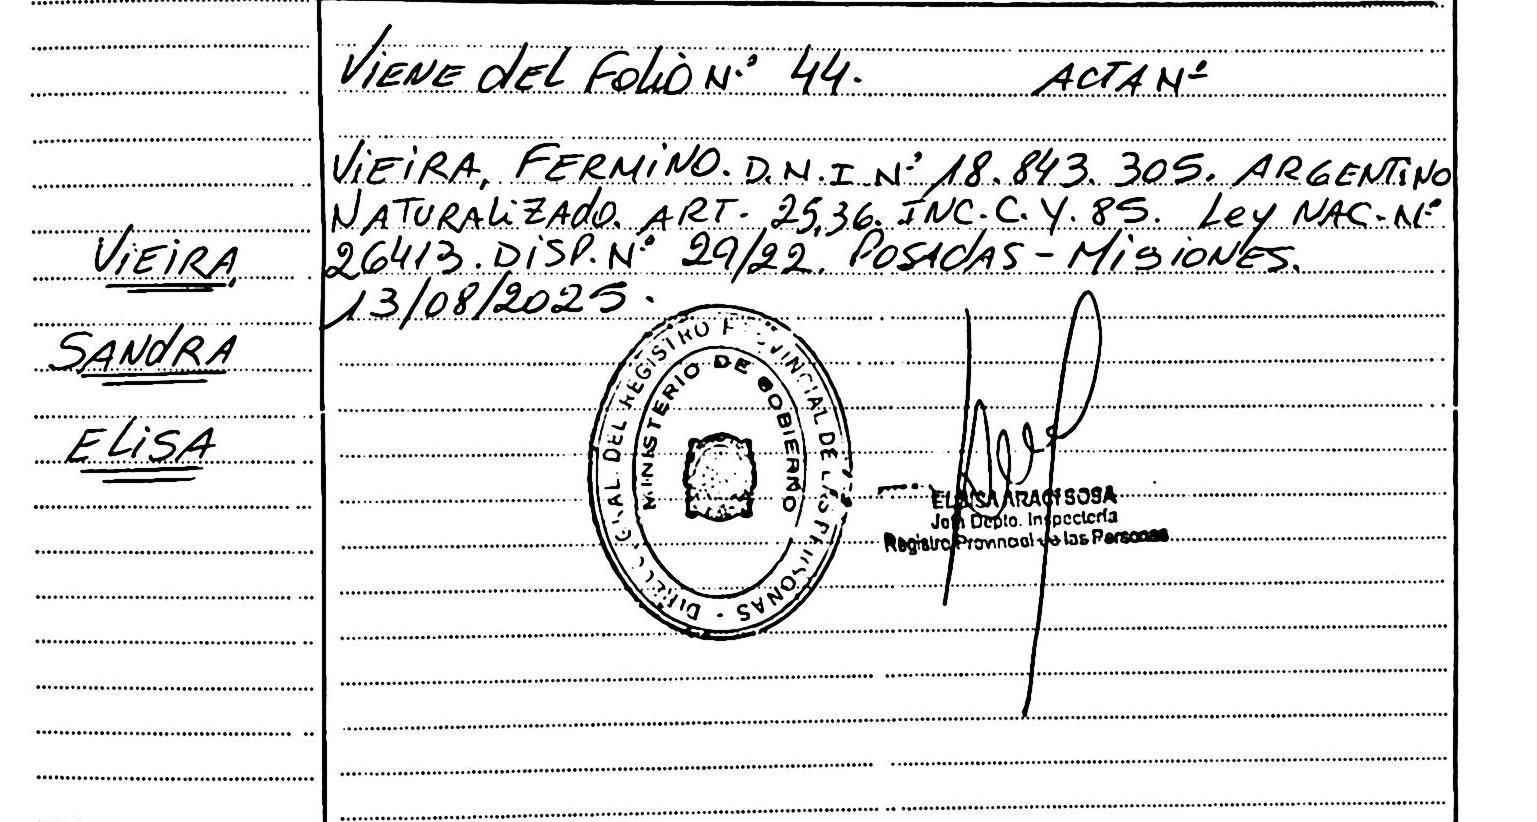 ViENE dEL FOLiO N.º 44. ACTA Nº
ViEiRA, FERMiNO. D.N.I.Nº 18.843.305. ARGENTiNO
NATURALiZAdO. ART. 25,36. INC.C.Y.85. Ley NAC.Nº
26413. DiSP.Nº 29/22. POSADAS - MiSiONES.
13/08/2025.
ViEiRA,
SANdRA
ELiSA
DIRECC GRAL DEL REGISTRO PROVINCIAL DE LAS PERSONAS -
MINISTERIO DE GOBIERNO
ELOISA ARACI SOSA
Jefa Depto. Inspectoría
Registro Provincial de las Personas